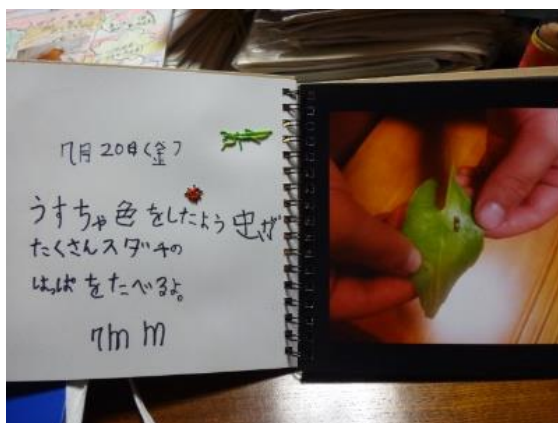 7月20日(金)
うすちゃ色をしたよう虫が
たくさんスダチの
はっぱをたべるよ。
7mm